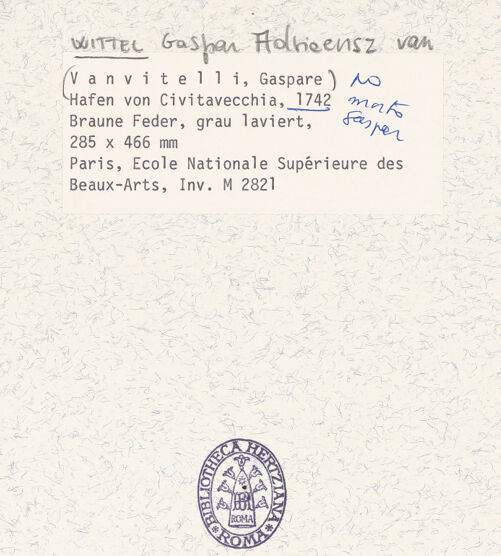 WITTEL Gaspar Adrieensz van
(Vanvitelli, Gaspare) NO
Hafen von Civitavecchia, 1742 morto
Braune Feder, grau laviert, Gaspar
285 x 466 mm
Paris, Ecole Nationale Supérieure des
Beaux-Arts, Inv. M 2821
*BIBLIOTHECA HERTZIANA*
BH
ROMA
ROMA